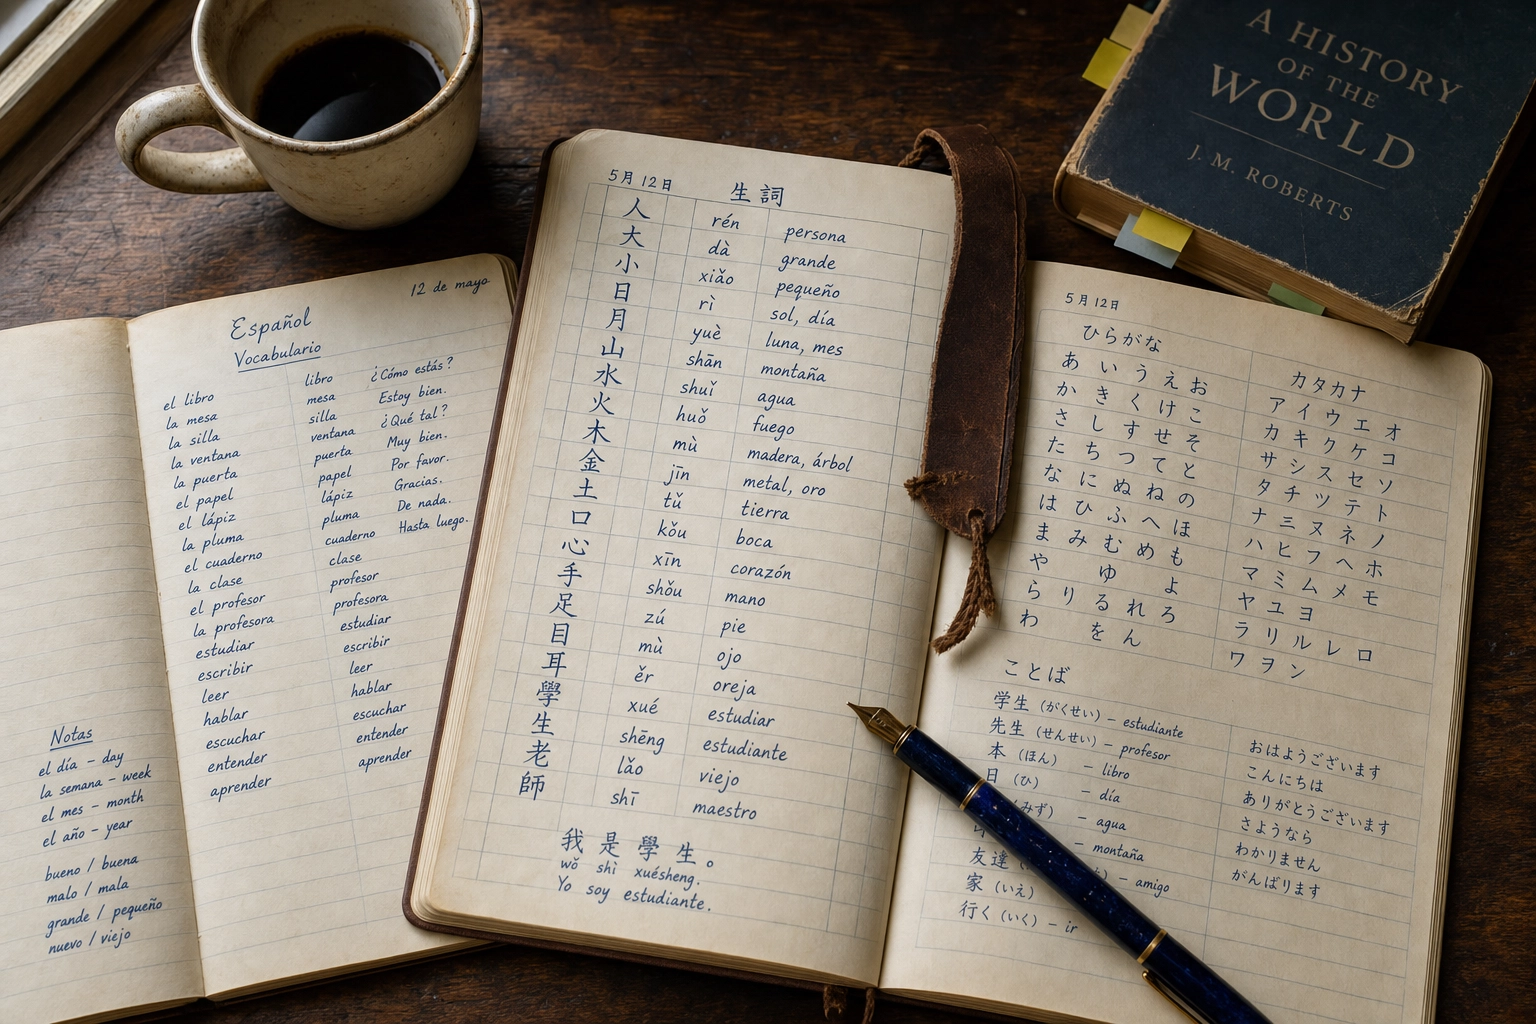 A HISTORY
OF THE
WORLD
J. M. ROBERTS
12 de mayo
Español
Vocabulario
el libro libro ¿Cómo estás?
la mesa mesa Estoy bien.
la silla silla ¿Qué tal?
la ventana ventana Muy bien.
la puerta puerta Por favor.
el papel papel Gracias.
el lápiz lápiz De nada.
la pluma pluma Hasta luego.
el cuaderno cuaderno
la clase clase
el profesor profesor
la profesora profesora
estudiar estudiar
escribir escribir
leer leer
hablar hablar
escuchar escuchar
entender entender
aprender aprender
Notas
el día – day
la semana – week
el mes – month
el año – year
bueno / buena
malo / mala
grande / pequeño
nuevo / viejo
5月12日 生詞
人 rén persona
大 dà grande
小 xiǎo pequeño
日 rì sol, día
月 yuè luna, mes
山 shān montaña
水 shuǐ agua
火 huǒ fuego
木 mù madera, árbol
金 jīn metal, oro
土 tǔ tierra
口 kǒu boca
心 xīn corazón
手 shǒu mano
足 zú pie
目 mù ojo
耳 ěr oreja
學 xué estudiar
生 shēng estudiante
老 lǎo viejo
師 shī maestro
我是學生。
wǒ shì xuésheng.
Yo soy estudiante.
5月12日
ひらがな
あ い う え お
か き く け こ
さ し す せ そ
た ち つ て と
な に ぬ ね の
は ひ ふ へ ほ
ま み む め も
や ゆ よ
ら り る れ ろ
わ を ん
カタカナ
ア イ ウ エ オ
カ キ ク ケ コ
サ シ ス セ ソ
タ チ ツ テ ト
ナ ニ ヌ ネ ノ
ハ ヒ フ ヘ ホ
マ ミ ム メ モ
ヤ ユ ヨ
ラ リ ル レ ロ
ワ ヲ ン
ことば
学生 (がくせい) – estudiante
先生 (せんせい) – profesor
本 (ほん) – libro
日 (ひ) – día
みず) – agua
– montaña
友達 – amigo
家 (いえ)
行く (いく) – ir
おはようございます
こんにちは
ありがとうございます
さようなら
わかりません
がんばります